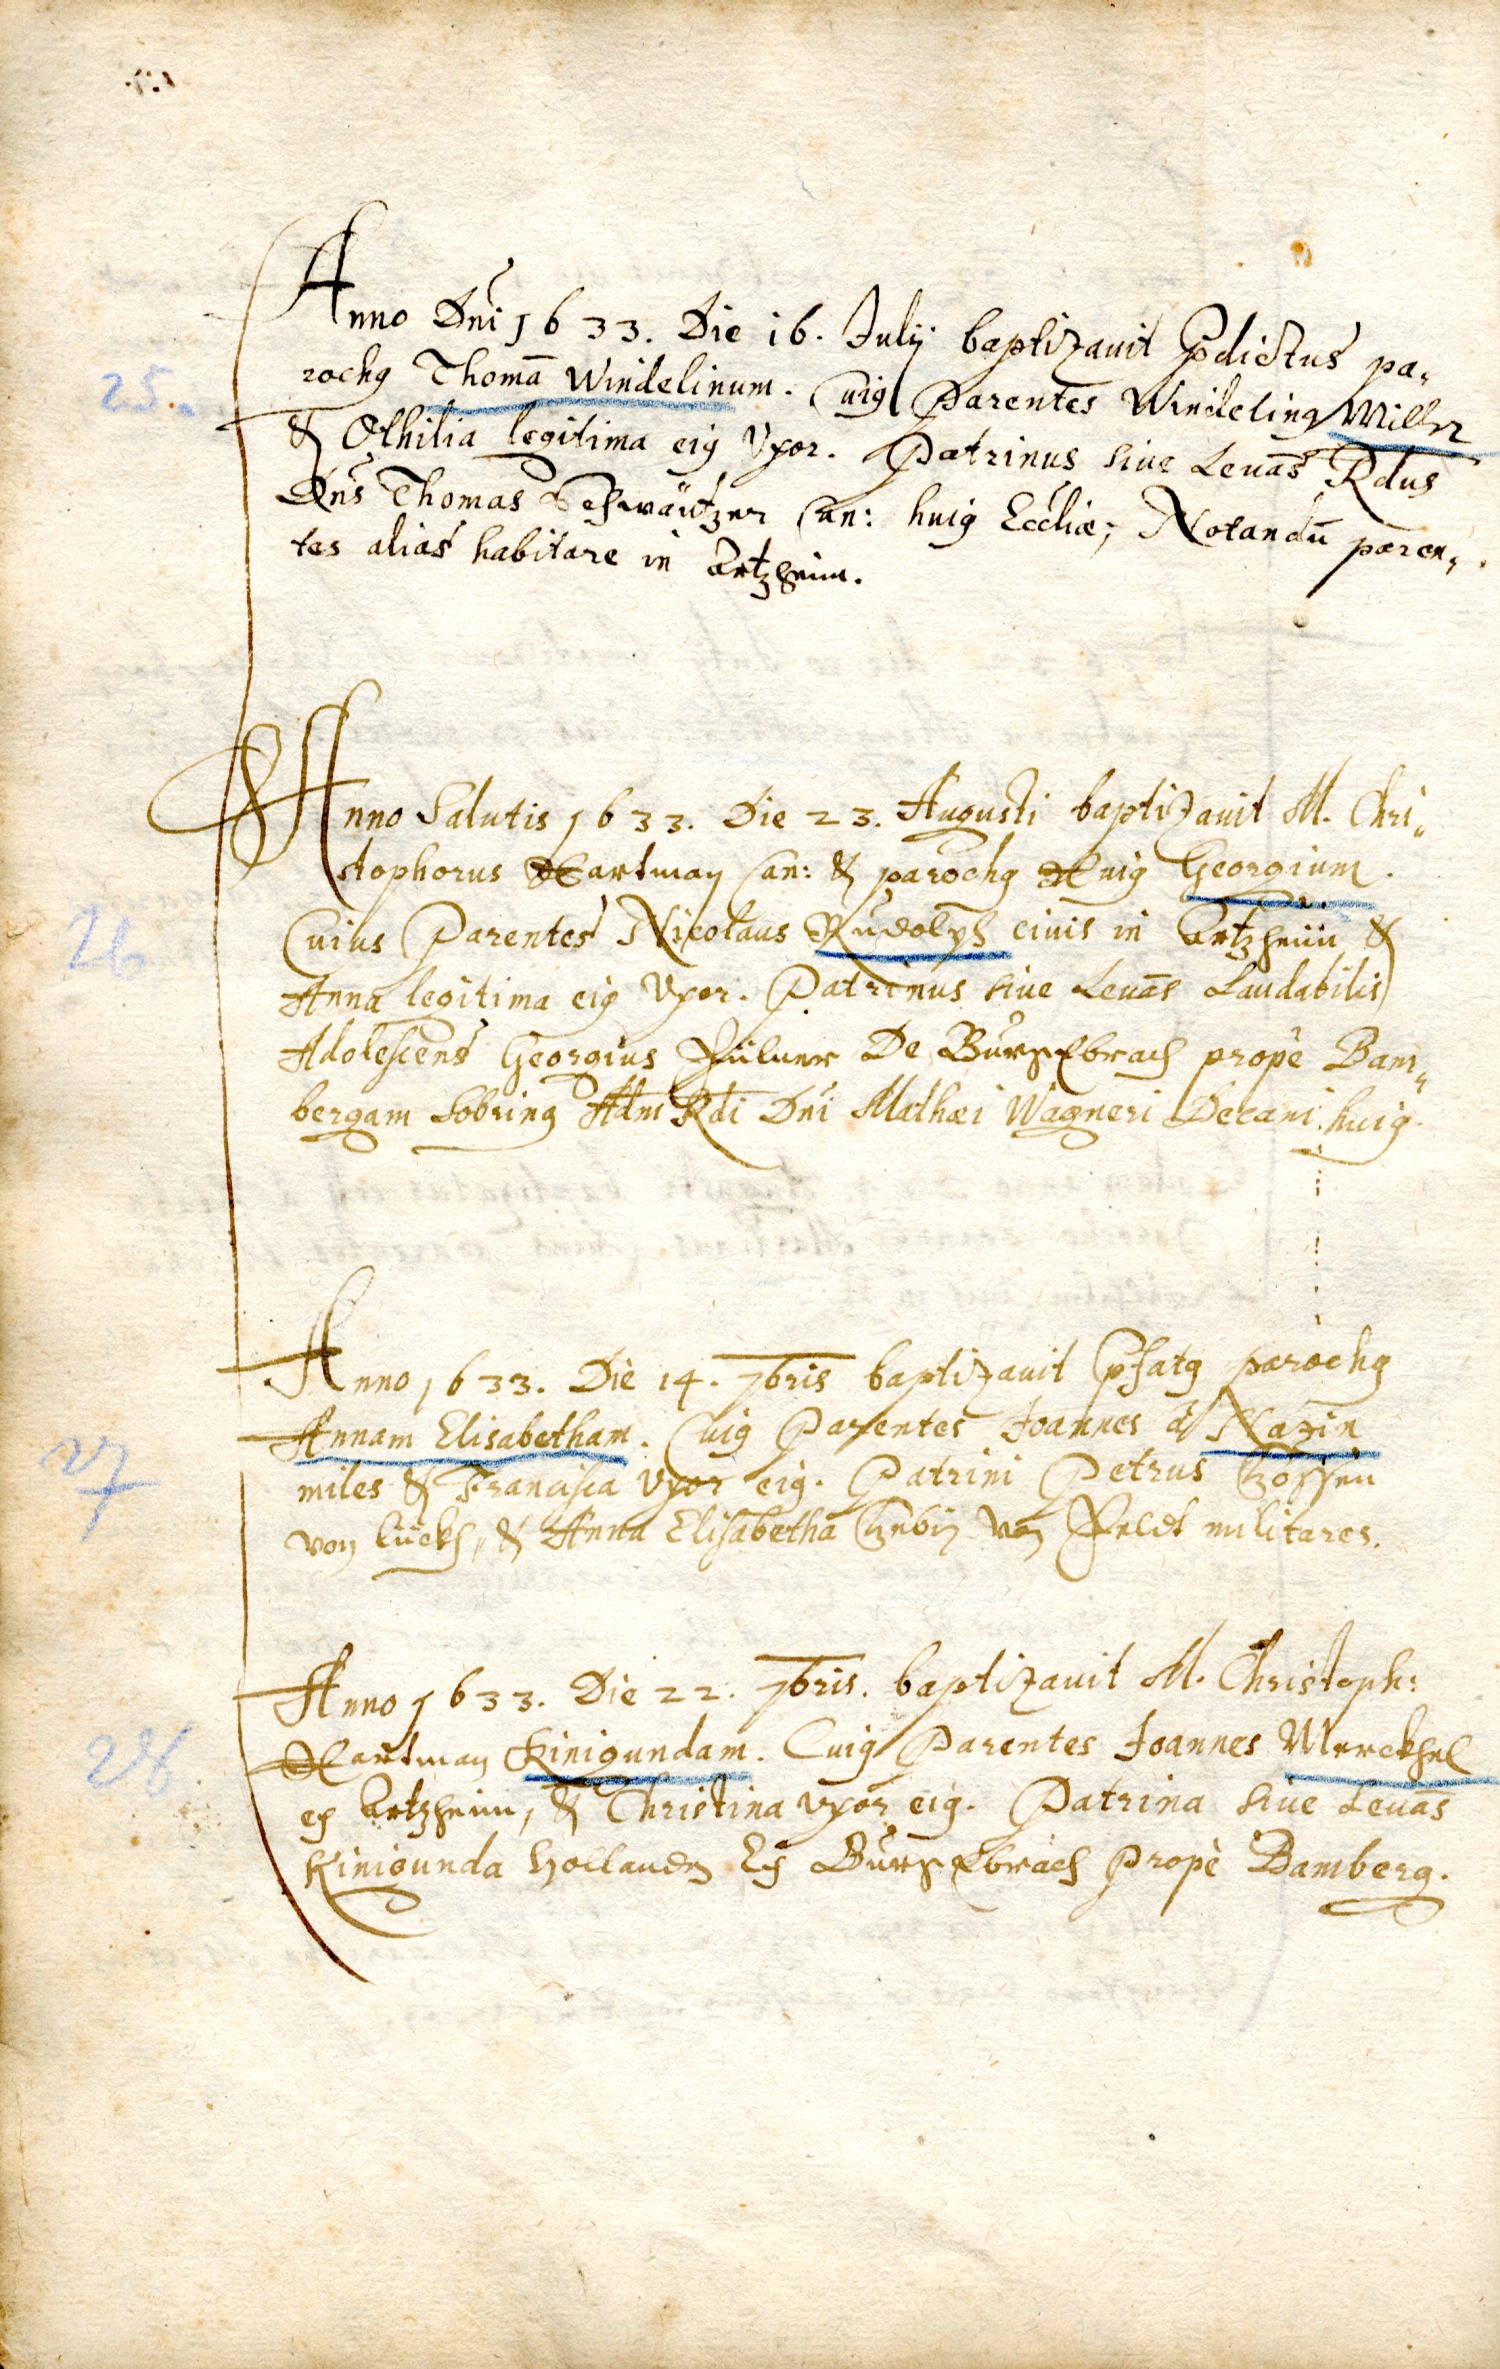 Anno Dñi 1633. Die 16. Julij baptizauit Pdictus pa„
25. rochq Thomã Windelinum. Cuiq Parentes Windelinq Miller
& Othilia legitima eiq Vxor. Patrinus siue Leuãs Rdus
Dñs Thomas Schwäitzer Can: huiq Eccliæ; Notandũ paren„
tes aliàs habitare in Artzheim.
Anno Salutis 1633. Die 23. Augusti baptizauit M. Chri„
stophorus Hartman Can: & parochq Huiq Georgium.
26 Cuius Parentes Nicolaus Rudolph ciuis in Artzheim &
Anna legitima eiq Vxor. Patrinus siue Leuãs Laudabilis
Adolescens Georgius De Burgkbrach propè Bam„
bergam Sobrinq Adm Rdi Dñi Mathæi Wagneri Decani huiq
Anno 1633. Die 14. 7bris baptizauit Pfatq parochq
27 Annam Elisabetham. Cuiq Parentes Joannes à Nazin
miles & Francisca Vxor eiq. Patrini Petrus
von lückh, & Anna Elisabetha von Feldt militares.
Anno 1633. Die 22. 7bris. baptizauit M. Christoph:
28 Hartman Kinigundam. Cuiq Parentes Joannes Merckhel
ex Artzheim, & Christina vxor eiq. Patrina siue Leuãs
Kinigunda Hollanden Ex Burgkbrach Propè Bamberg.